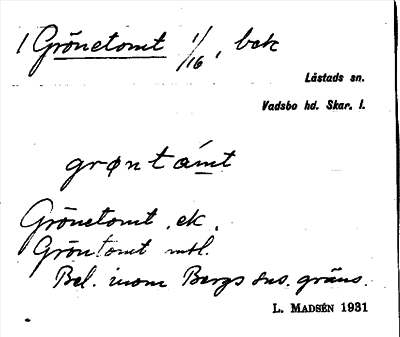 1 Grönetomt 1/16, bck
Låstads sn.
Vadsbo hd. Skar. l.
grøntåmt
Grönetomt ek.
Gröntomt mtl.
Bel. inom Bergs sns. gräns.
L. MADSÉN 1931